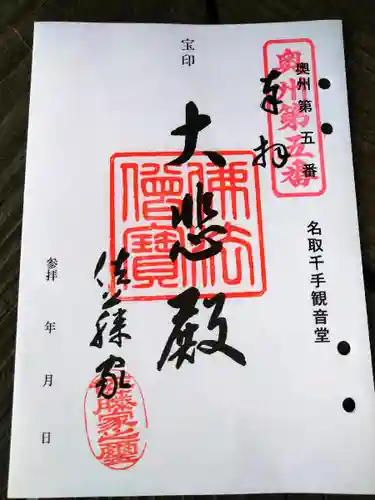 奥州第五番
奥州第五番
奉拝
名取千手観音堂
宝印
大悲殿
佛法僧寳
佐藤家
参拝 年 月 日